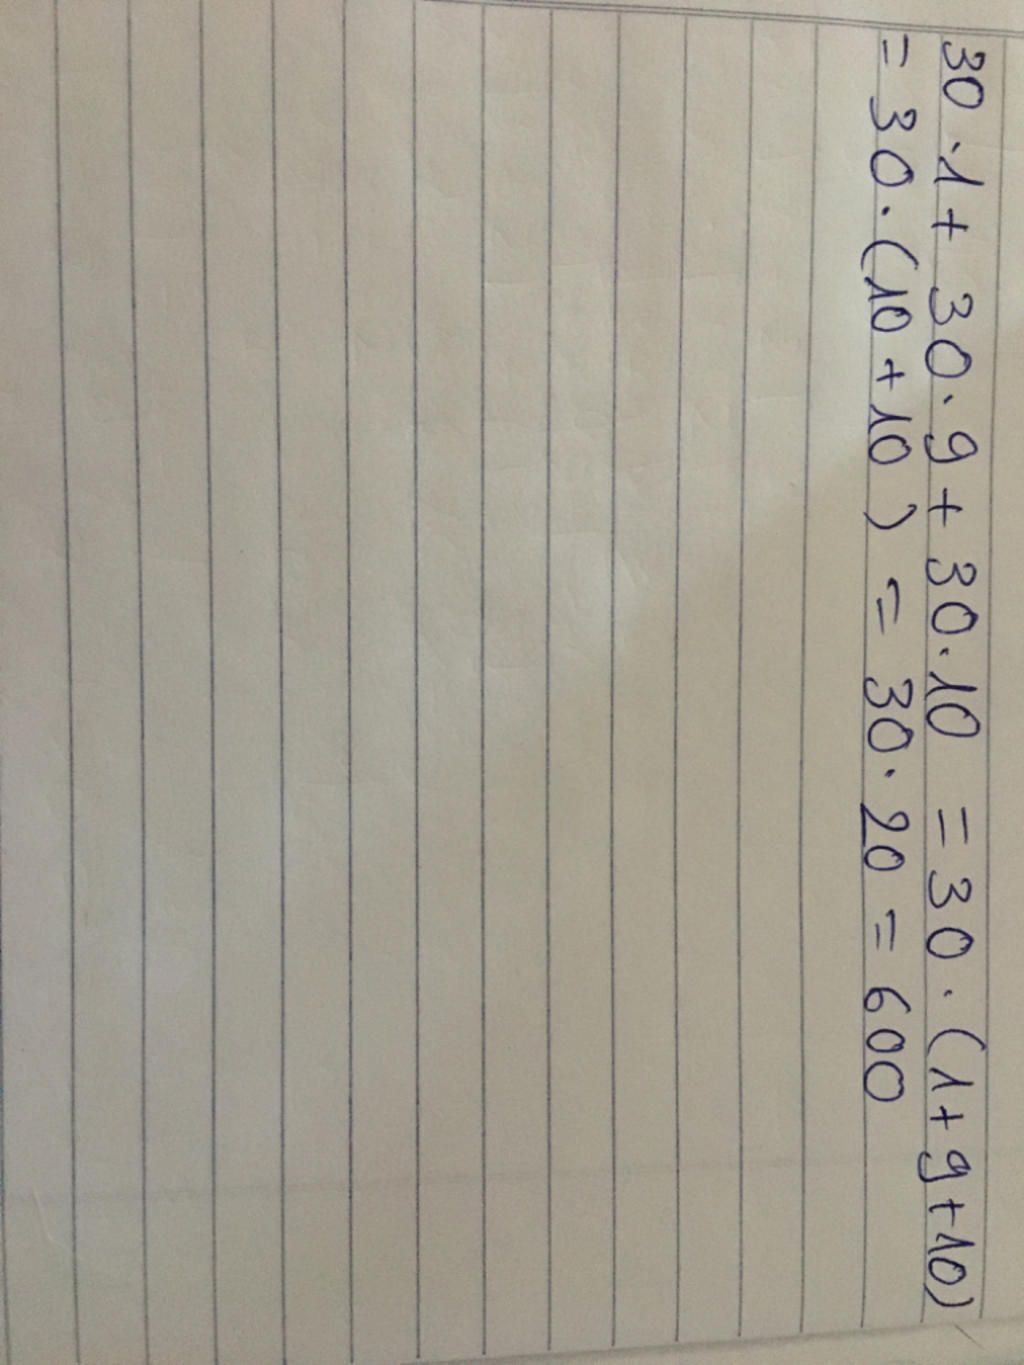 30 · 1 + 30 · 9 + 30 · 10 = 30 · (1 + 9 + 10)
= 30 · (10 + 10) = 30 · 20 = 600